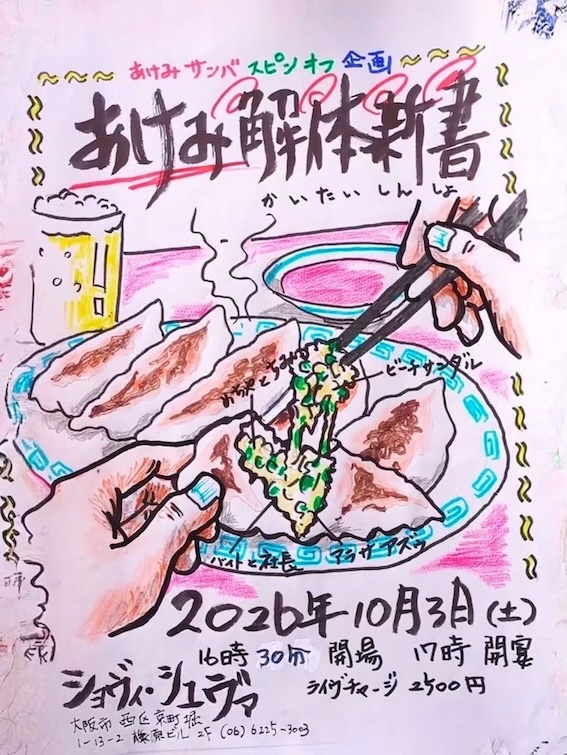 あけみサンバ スピンオフ 企画
あけみ解体新書
かいたいしんしょ
おちゃとちみ
ビーチサンダル
バイトと社長
アラサーアズゥ
2026年10月3日(土)
16時30分 開場 17時 開宴
ショヴィ・シュヴァ
ライヴチャージ 2500円
大阪市西区京町堀
1-13-2 槇原ビル2F (06)6225-3003